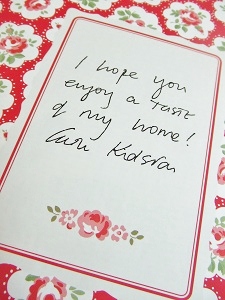 I hope you
enjoy a taste
of my home!
Cath Kidston